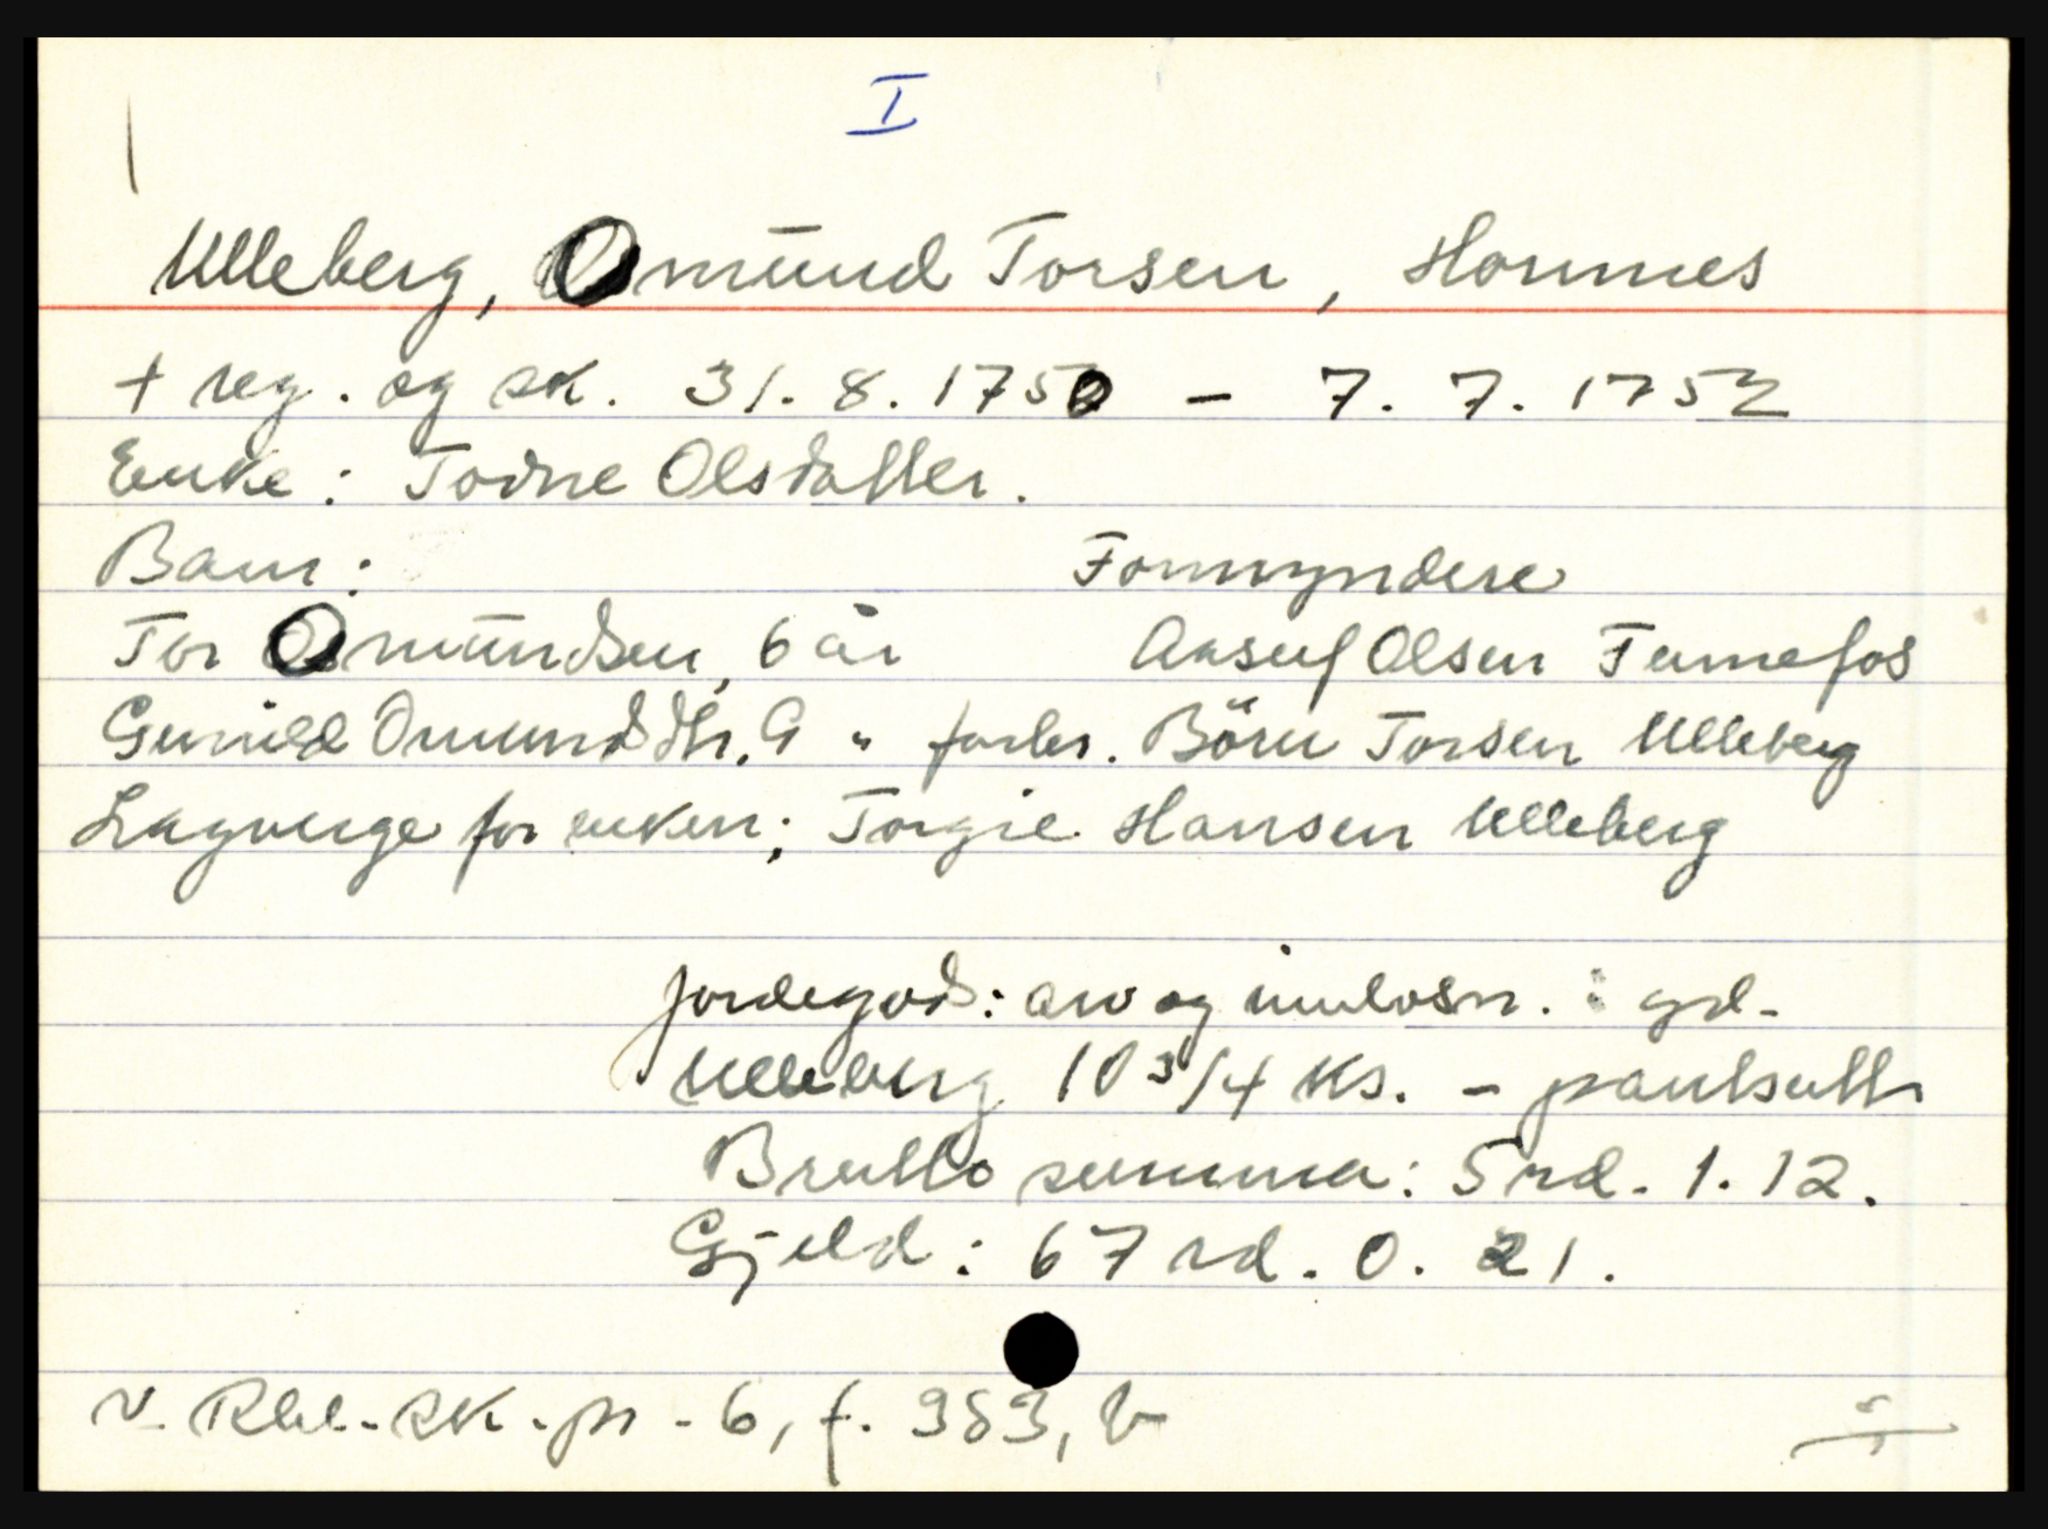 I
Ulleberg, Omund Torsen, Hornnes
+ reg. og sk. 31. 8. 1750 - 7. 7. 1752
Enke: Torne Olsdatter.
Barn: Formyndere
Tor Omundsen, 6 år Aasulf Olsen Fennefos
Gunild Omundsdtr. 9 " farbr. Börn Torsen Ulleberg
Lagverge for enken; Torgie Hansen Ulleberg
Jordegods: arv og innløsn. i grd.
Ulleberg 10 3/4 ks. - pantsatt
Brutto summa: 5 rd. 1. 12.
Gjeld: 67 rd. 0. 21.
v. Rbl. sk. pr. 6, f. 983, b